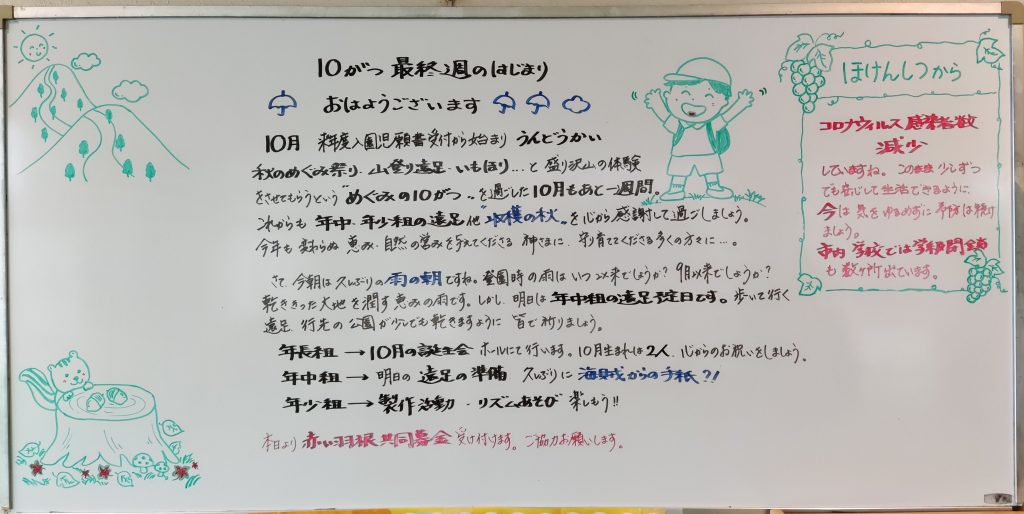 10がつ 最終週のはじまり
おはようございます
10月 来年度入園児願書受付から始まり うんどうかい
秋のめぐみ祭り、山登り遠足、いもほり…と 盛り沢山の体験
をさせてもらうという"めぐみの10がつ"を過ごした10月もあと一週間。
これからも 年中、年少組の遠足他"収穫の秋"を心から感謝して過ごしましょう。
今年も 変わらぬ 恵み・自然の営みを与えてくださる 神さまに、守り育ててくださる多くの方々に…。
さて、今朝は久しぶりの雨の朝ですね。登園時の雨はいつ以来でしょうか? 9月以来でしょうか?
乾ききった大地を潤す恵みの雨です。しかし、明日は年中組の遠足予定日です。歩いて行く
遠足 行先の公園が少しでも乾きますように 皆で祈りましょう。
年長組 → 10月の誕生会 ホールにて行います。10月生まれは2人、心からのお祝いをしましょう。
年中組 → 明日の 遠足の準備 久しぶりに 海賊からの手紙?!
年少組 → 製作活動・リズムあそび 楽しもう!!
本日より 赤い羽根共同募金 受け付けます。ご協力お願いします。
ほけんしつから
コロナウィルス感染者数
減少
していますね。このまま少しずつ
でも安心して生活できるように、
今は気をゆるめずに予防は続け
ましょう。
市内 学校では学級閉鎖
も数ヶ所出ています。